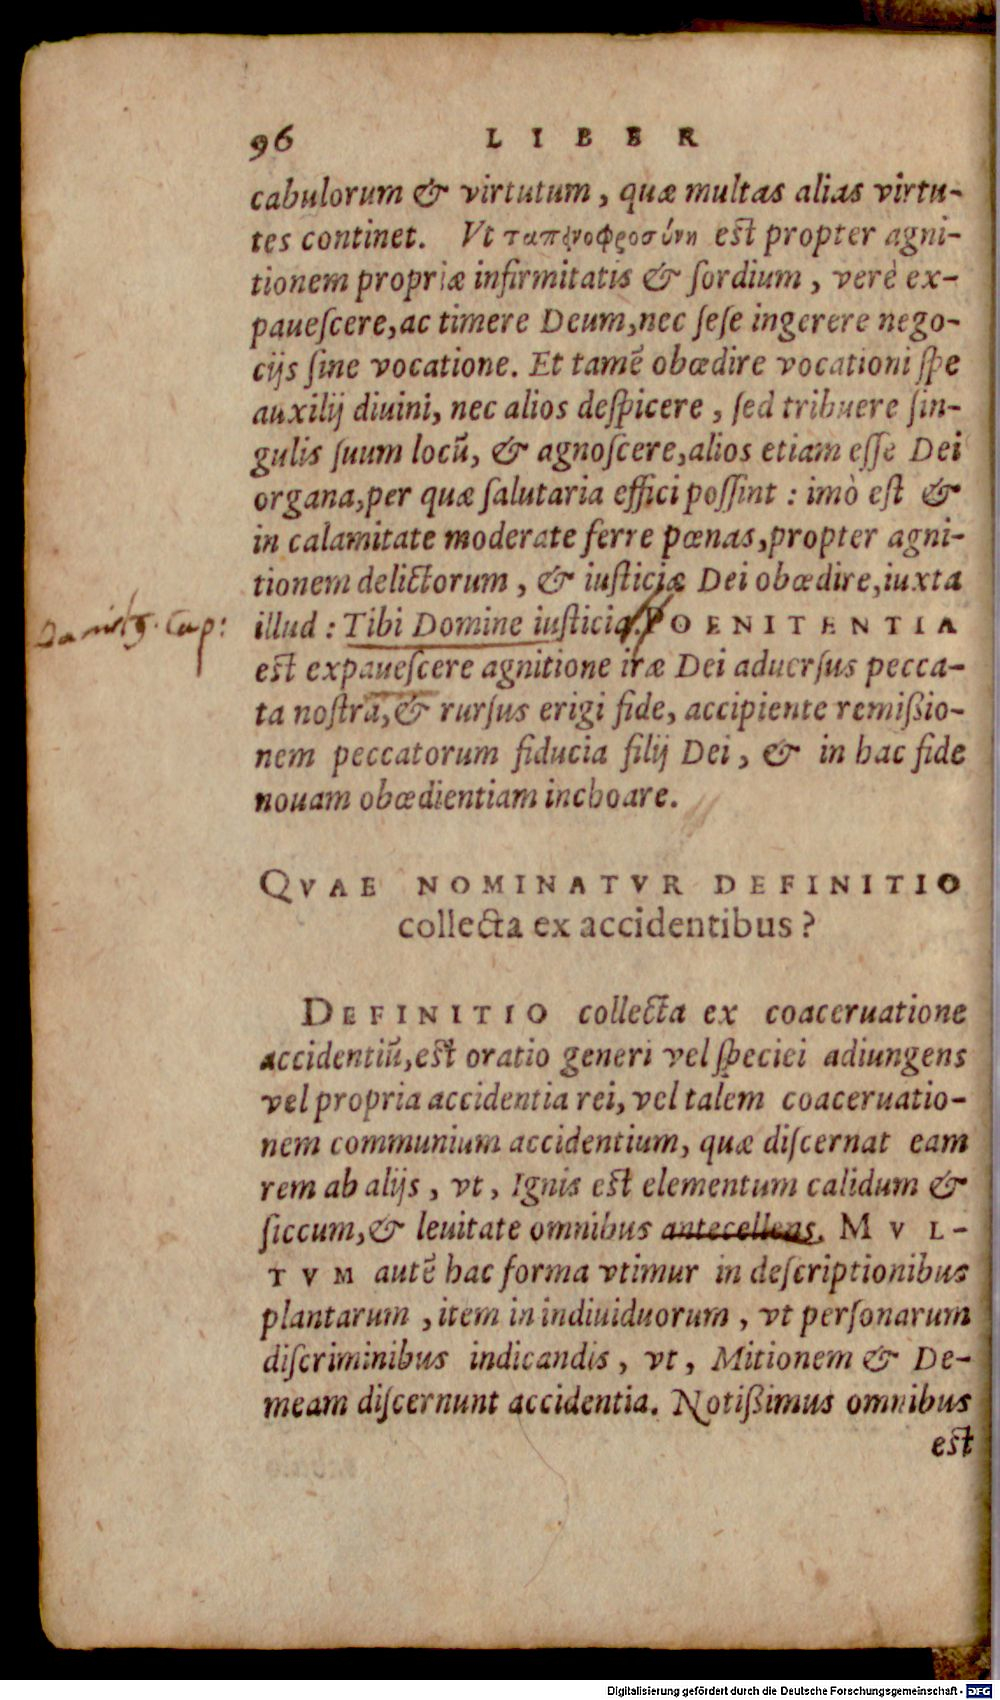 96 LIBER
cabulorum & virtutum, quæ multas alias virtu-
tes continet. Vt ταπεινοφροσύνη est propter agni-
tionem propriæ infirmitatis & ſordium, verè ex-
paueſcere, ac timere Deum, nec ſeſe ingerere nego-
cijs ſine vocatione. Et tamẽ obœdire vocationi ſpe
auxilij diuini, nec alios deſpicere, ſed tribuere ſin-
gulis ſuum locũ, & agnoſcere, alios etiam eſſe Dei
organa, per quæ ſalutaria effici poſſint : imò eſt &
in calamitate moderate ferre pœnas, propter agni-
tionem delictorum, & iuſticiæ Dei obœdire, iuxta
Danielis 9. Cap:
illud : Tibi Domine iuſticia. POENITENTIA
eſt expaueſcere agnitione iræ Dei aduerſus pecca-
ta noſtra, & rurſus erigi fide, accipiente remißio-
nem peccatorum fiducia filij Dei, & in hac fide
nouam obœdientiam inchoare.
QVAE NOMINATVR DEFINITIO
collecta ex accidentibus?
DEFINITIO collecta ex coaceruatione
accidentiũ, eſt oratio generi vel ſpeciei adiungens
vel propria accidentia rei, vel talem coaceruatio-
nem communium accidentium, quæ diſcernat eam
rem ab alijs, vt, Ignis eſt elementum calidum &
ſiccum, & leuitate omnibus antecellens. MVL-
TVM autẽ hac forma vtimur in deſcriptionibus
plantarum, item in indiuiduorum, vt perſonarum
diſcriminibus indicandis, vt, Mitionem & De-
meam diſcernunt accidentia. Notißimus omnibus
eſt
Digitalisierung gefördert durch die Deutsche Forschungsgemeinschaft - DFG